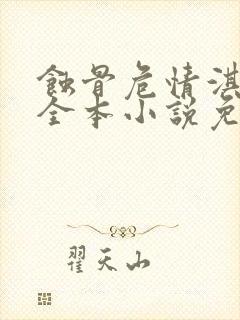 蝕骨危情淇
全本小說免
翟天山